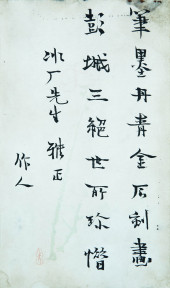 筆墨丹青金石刻畫
彭城三絕世所珍惜
冰厂先生雅正
作人